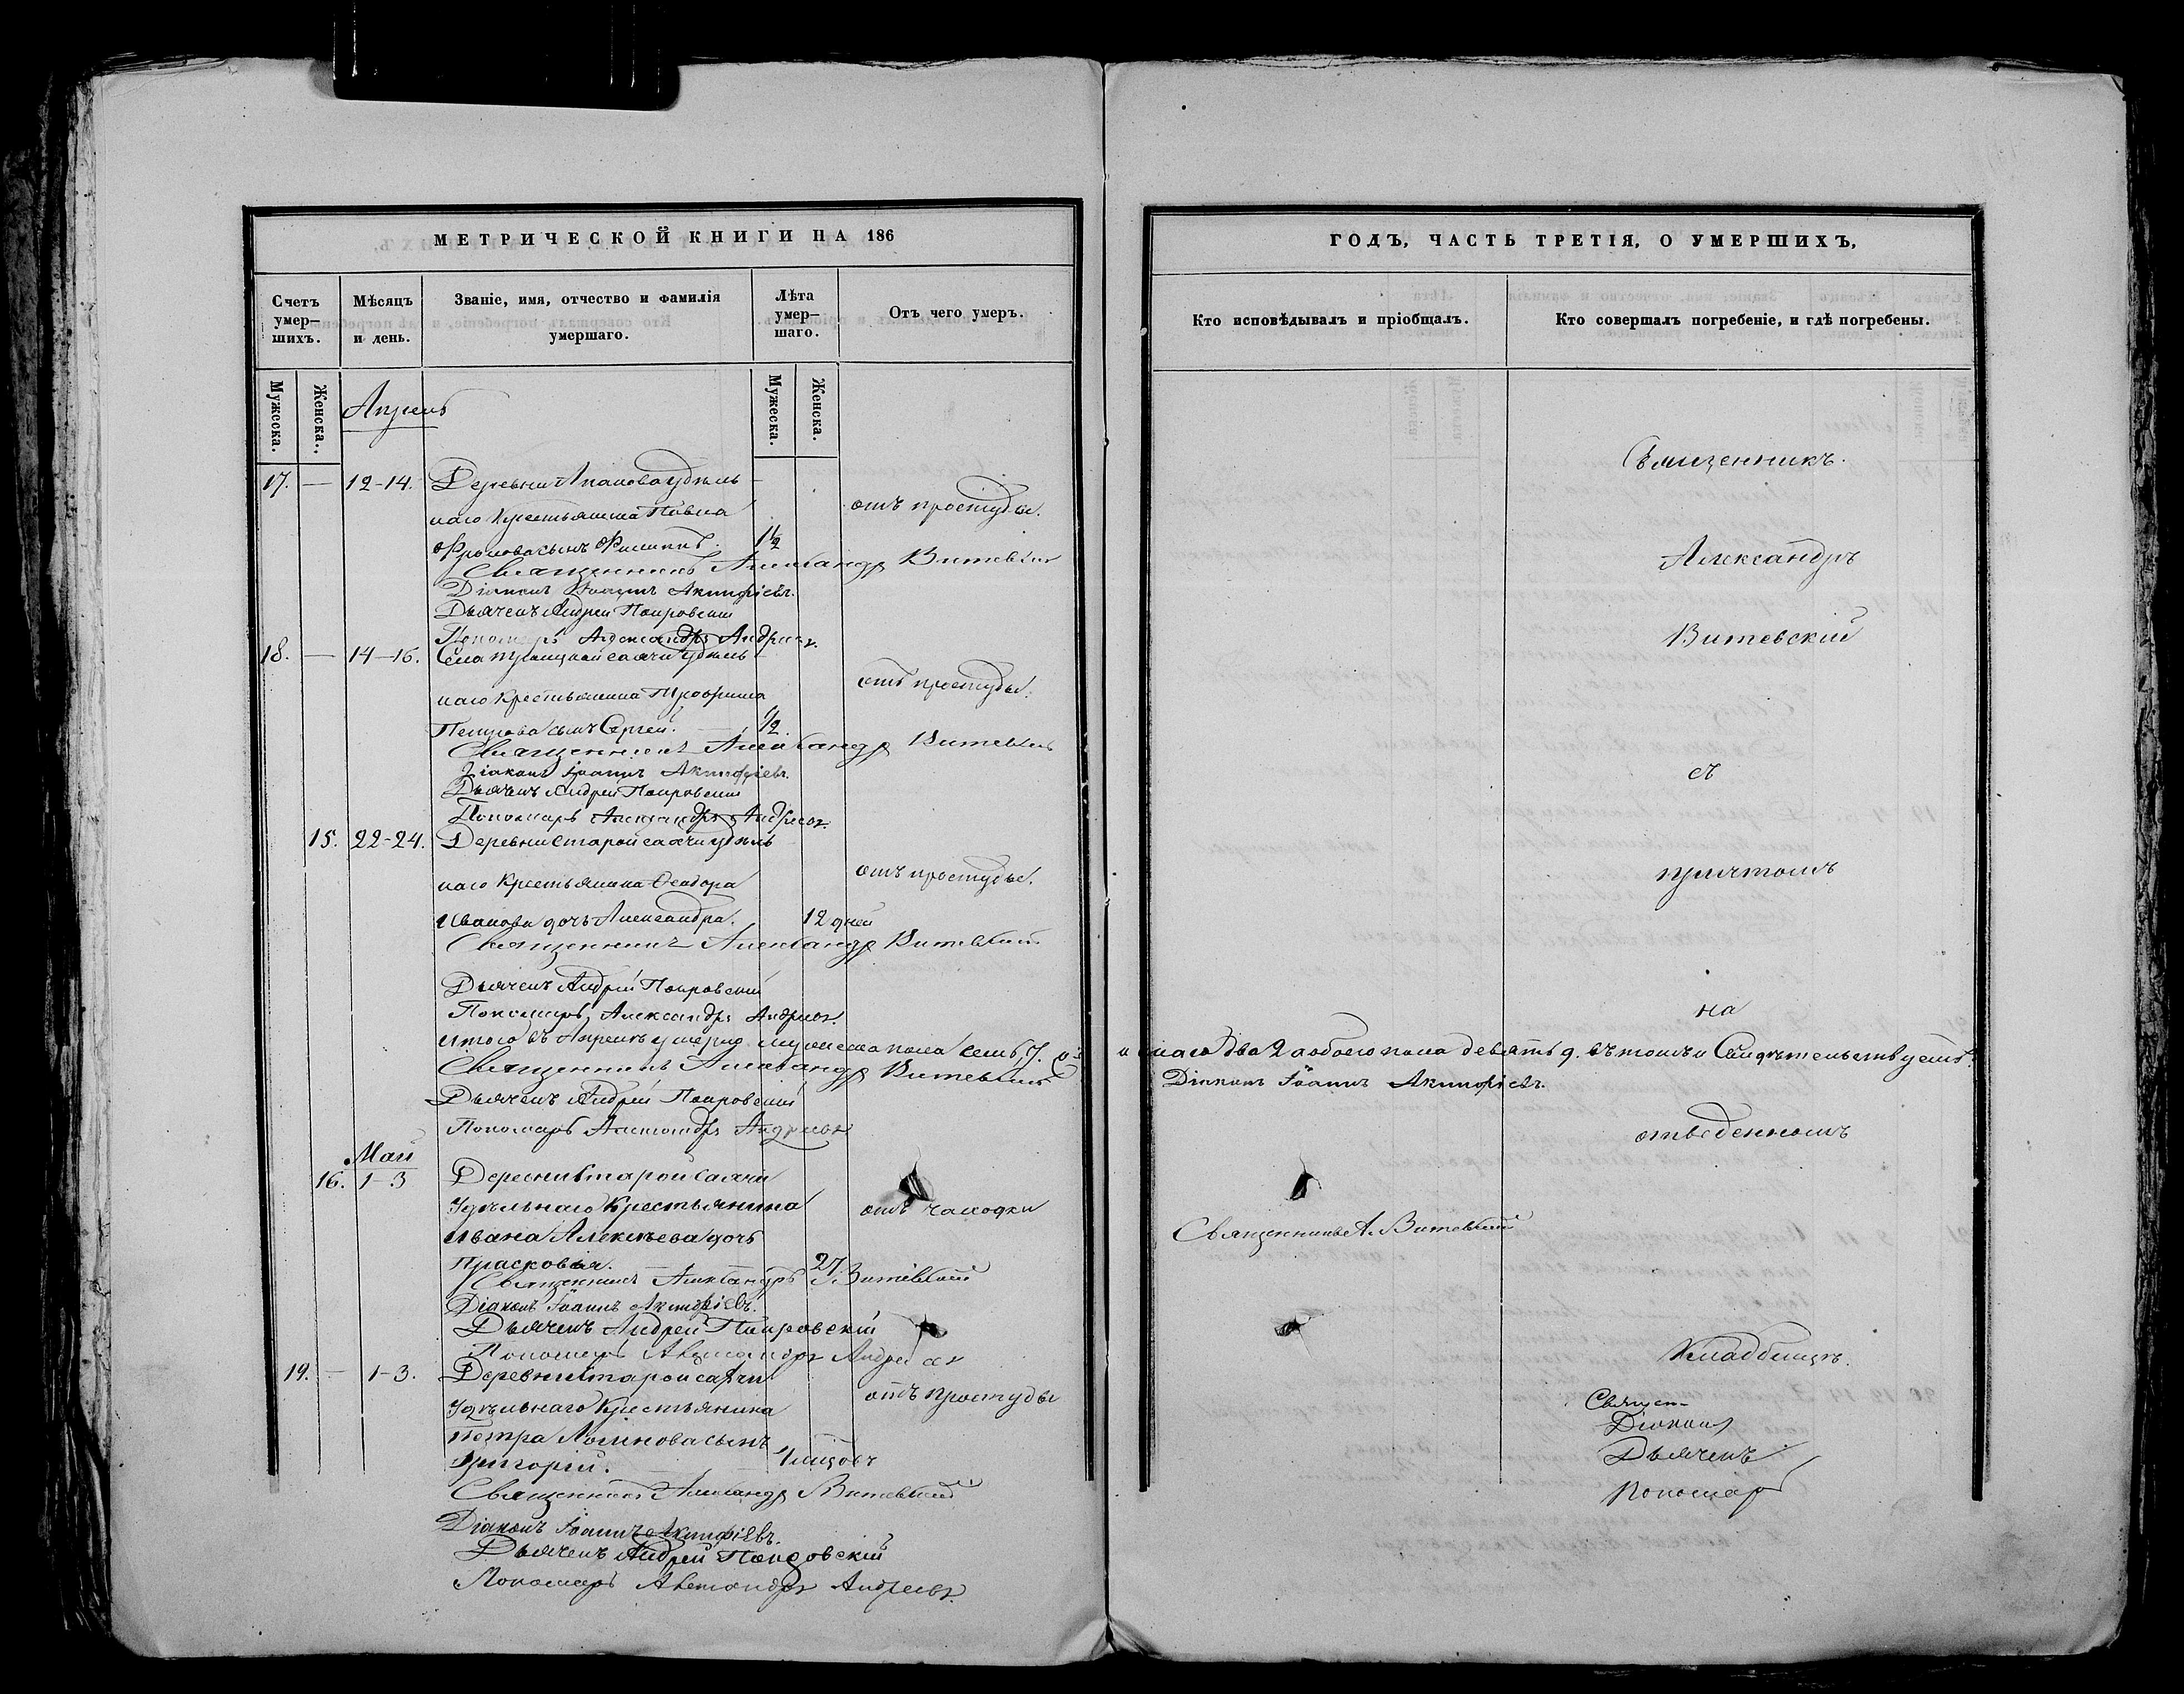 МЕТРИЧЕСКОЙ КНИГИ НА 186
Счетъ умер-шихъ.
Мѣсяцъ и день.
Званіе, имя, отчество и фамилія умершаго.
Лѣта умер-шаго.
Отъ чего умеръ.
Мужеска.
Женска.
Мужеска.
Женска.
Апрель
17. — 12-14. Деревни удѣль
наго Крестьянина Павла отъ простуды.
Фролова сынъ Филиппъ. 1½
Священникъ Александръ Витевскій
Діаконъ Іоаннъ Акинфіевъ.
Дьячекъ Андрей Покровскій
Пономарь Александръ Андреевъ.
18. — 14-16. Села Троицкой саячи удѣль
наго Крестьянина Трофима отъ простуды.
Петрова сынъ Сергей. ½
Священникъ Александръ Витевскій
Діаконъ Іоаннъ Акинфіевъ.
Дьячекъ Андрей Покровскій
Пономарь Александръ Андреевъ.
15. 22-24. Деревни старой саячи удѣль
наго Крестьянина Феодора отъ простуды.
Иванова дочь Александра. 12 дней
Священникъ Александръ Витевскій
Дьячекъ Андрей Покровскій
Пономарь Александръ Андреевъ.
Итого въ Апрелѣ умерло мужеска пола семь 7.
Священникъ Александръ Витевскій
Дьячекъ Андрей Покровскій
Пономарь Александръ Андреевъ
Май
16. 1-3 Деревни старой саячи
Удѣльнаго Крестьянина отъ чахотки
Ивана Алексѣева дочь
Прасковья. 27.
Священникъ Александръ Витевскій
Діаконъ Іоаннъ Акинфіевъ.
Дьячекъ Андрей Покровскій
Пономарь Александръ Андреевъ
19. — 1-3. Деревни старой саячи
Удѣльнаго Крестьянина отъ простуды
Петра Логинова сынъ
Григорій. 1 мѣсяцъ
Священникъ Александръ Витевскій
Діаконъ Іоаннъ Акинфіевъ.
Дьячекъ Андрей Покровскій
Пономарь Александръ Андреевъ.
ГОДЪ, ЧАСТЬ ТРЕТІЯ, О УМЕРШИХЪ,
Кто исповѣдывалъ и пріобщалъ.
Кто совершалъ погребеніе, и гдѣ погребены.
Священникъ.
Александръ
Витевскій
съ
причтомъ
на
два 2 а обоего пола девять 9. въ томъ и Свидѣтельствуемъ.
Діаконъ Іоаннъ Акинфіевъ.
отведенномъ
Священникъ А. Витевскій
Кладбищѣ.
Священ-
Діаконъ
Дьячекъ
Пономарь